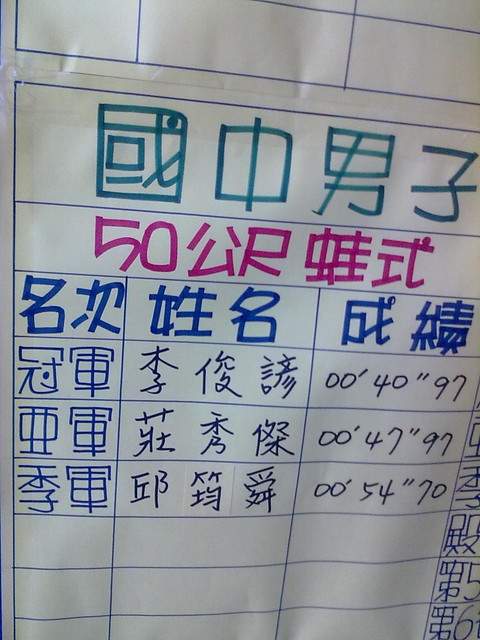 國中男子
50公尺蛙式
名次 姓名 成績
冠軍 李俊諺 00'40"97
亞軍 莊秀傑 00'47"97
季軍 邱筠舜 00'54"70
殿
第5
第6